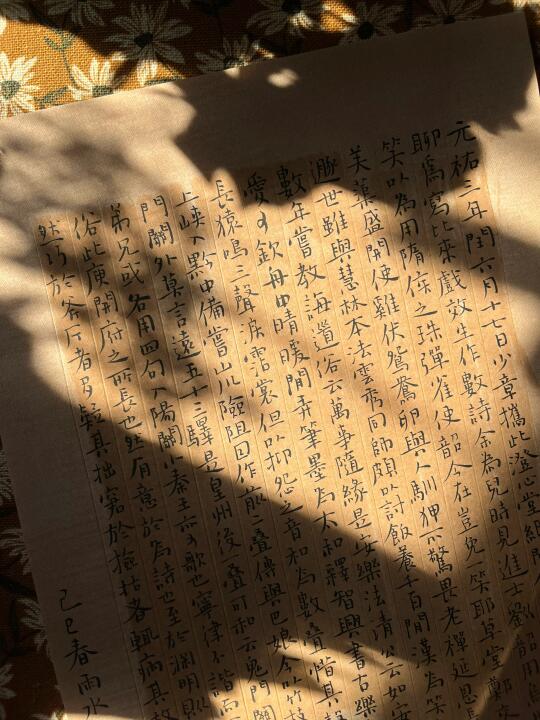 元祐三年閏六月十七日少章攜此澄心堂紙
聊為寫比來戲效生作數詩余為兒時見進士劉韶
笑以為用隋侯之珠彈雀使韶今在豈免一笑耶草堂鄭
芙蕖盛開使雞伏鴛鴦卵與人馴狎不驚畏老禪延恩
遯世雖與慧林本法雲秀同師頗以討飯養千百閒漢為笑
數年嘗教海道俗云萬事隨緣是安樂法清公云如
愛可欽舟中晴暖閒弄筆墨為太和釋智興書古樂
長猿鳴三聲淚霑裳但以抑怨之音和為數疊惜其聲
上峽入黔中備嘗山川險阻因作前二疊傳與巴娘令以竹枝
門關外莫言遠五十三驛是皇州後疊可和云鬼門關
弟兄或各用四句入陽關小秦王亦可歌也寧律不諧而
俗此庾開府之所長也然有意於為詩也至於淵明則
然巧於斧斤者多疑其拙窘於檢括者輒病其放
己巳春雨水